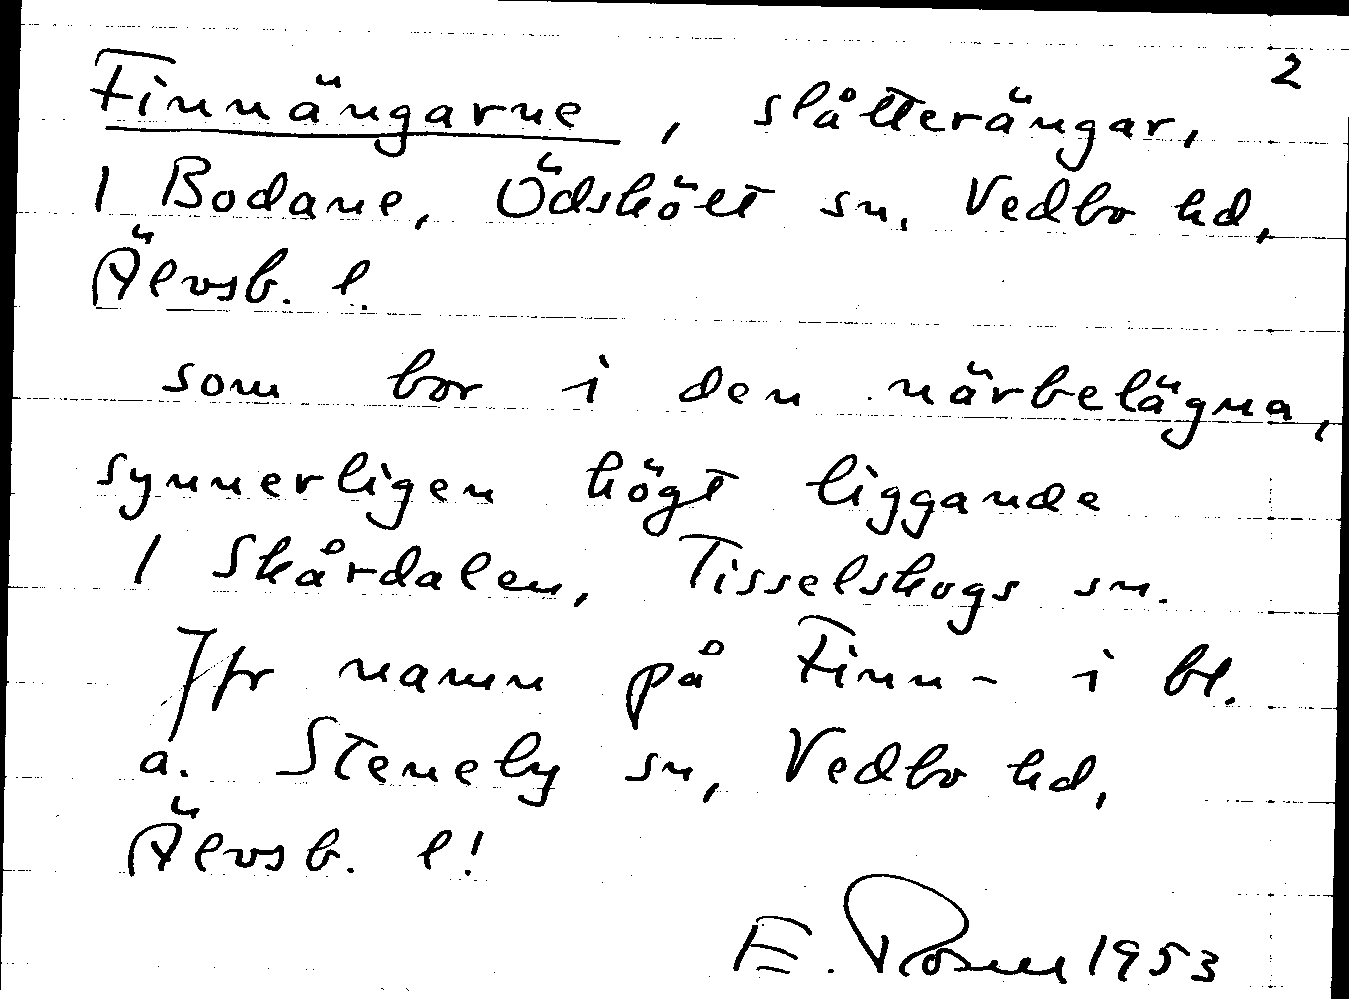 2
Finnängarne, slåtterängar,
1 Bodane, Ödskölt sn, Vedbo hd,
Älvsb. l.
som bor i den närbelägna,
synnerligen högt liggande
1 Skårdalen, Tisselskogs sn.
Jfr namn på Finn- i bl.
a. Steneby sn, Vedbo hd,
Älvsb. l!
E. Rosell 1953